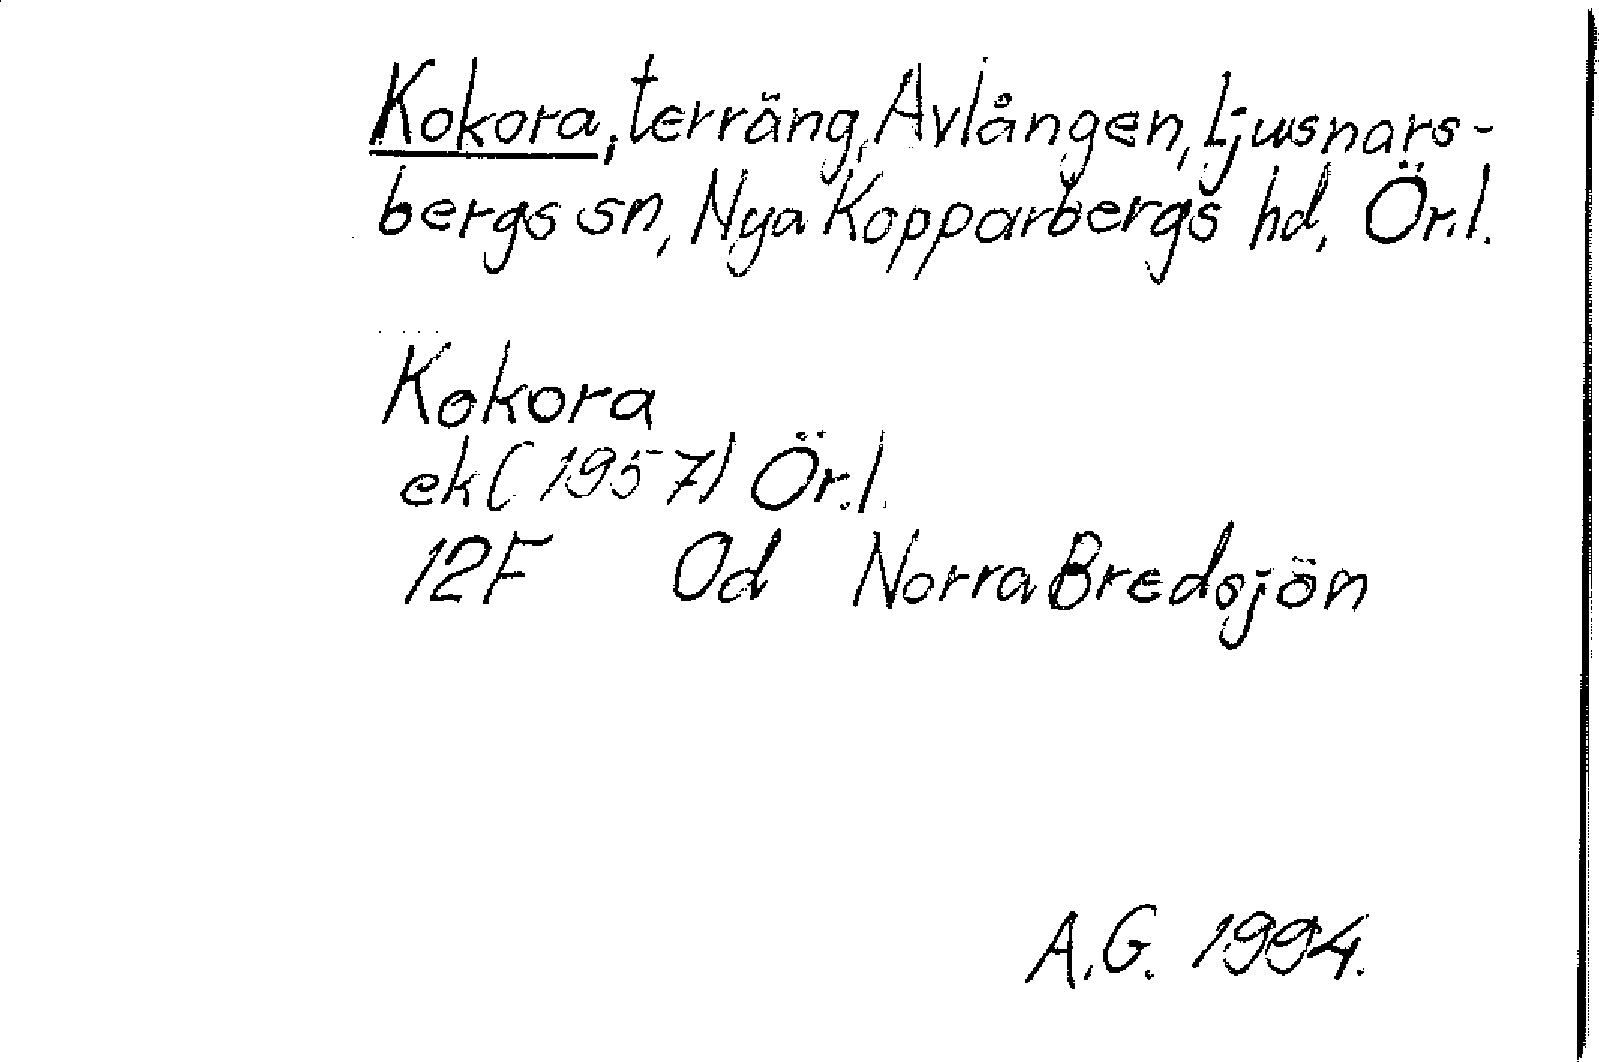 Kokora, terräng, Avlången, Ljusnars-
bergs sn, Nya Kopparbergs hd, Ör.l.
Kokora
ek (1957) Ör.l.
12F Od Norra Bredsjön
A.G. 1994.